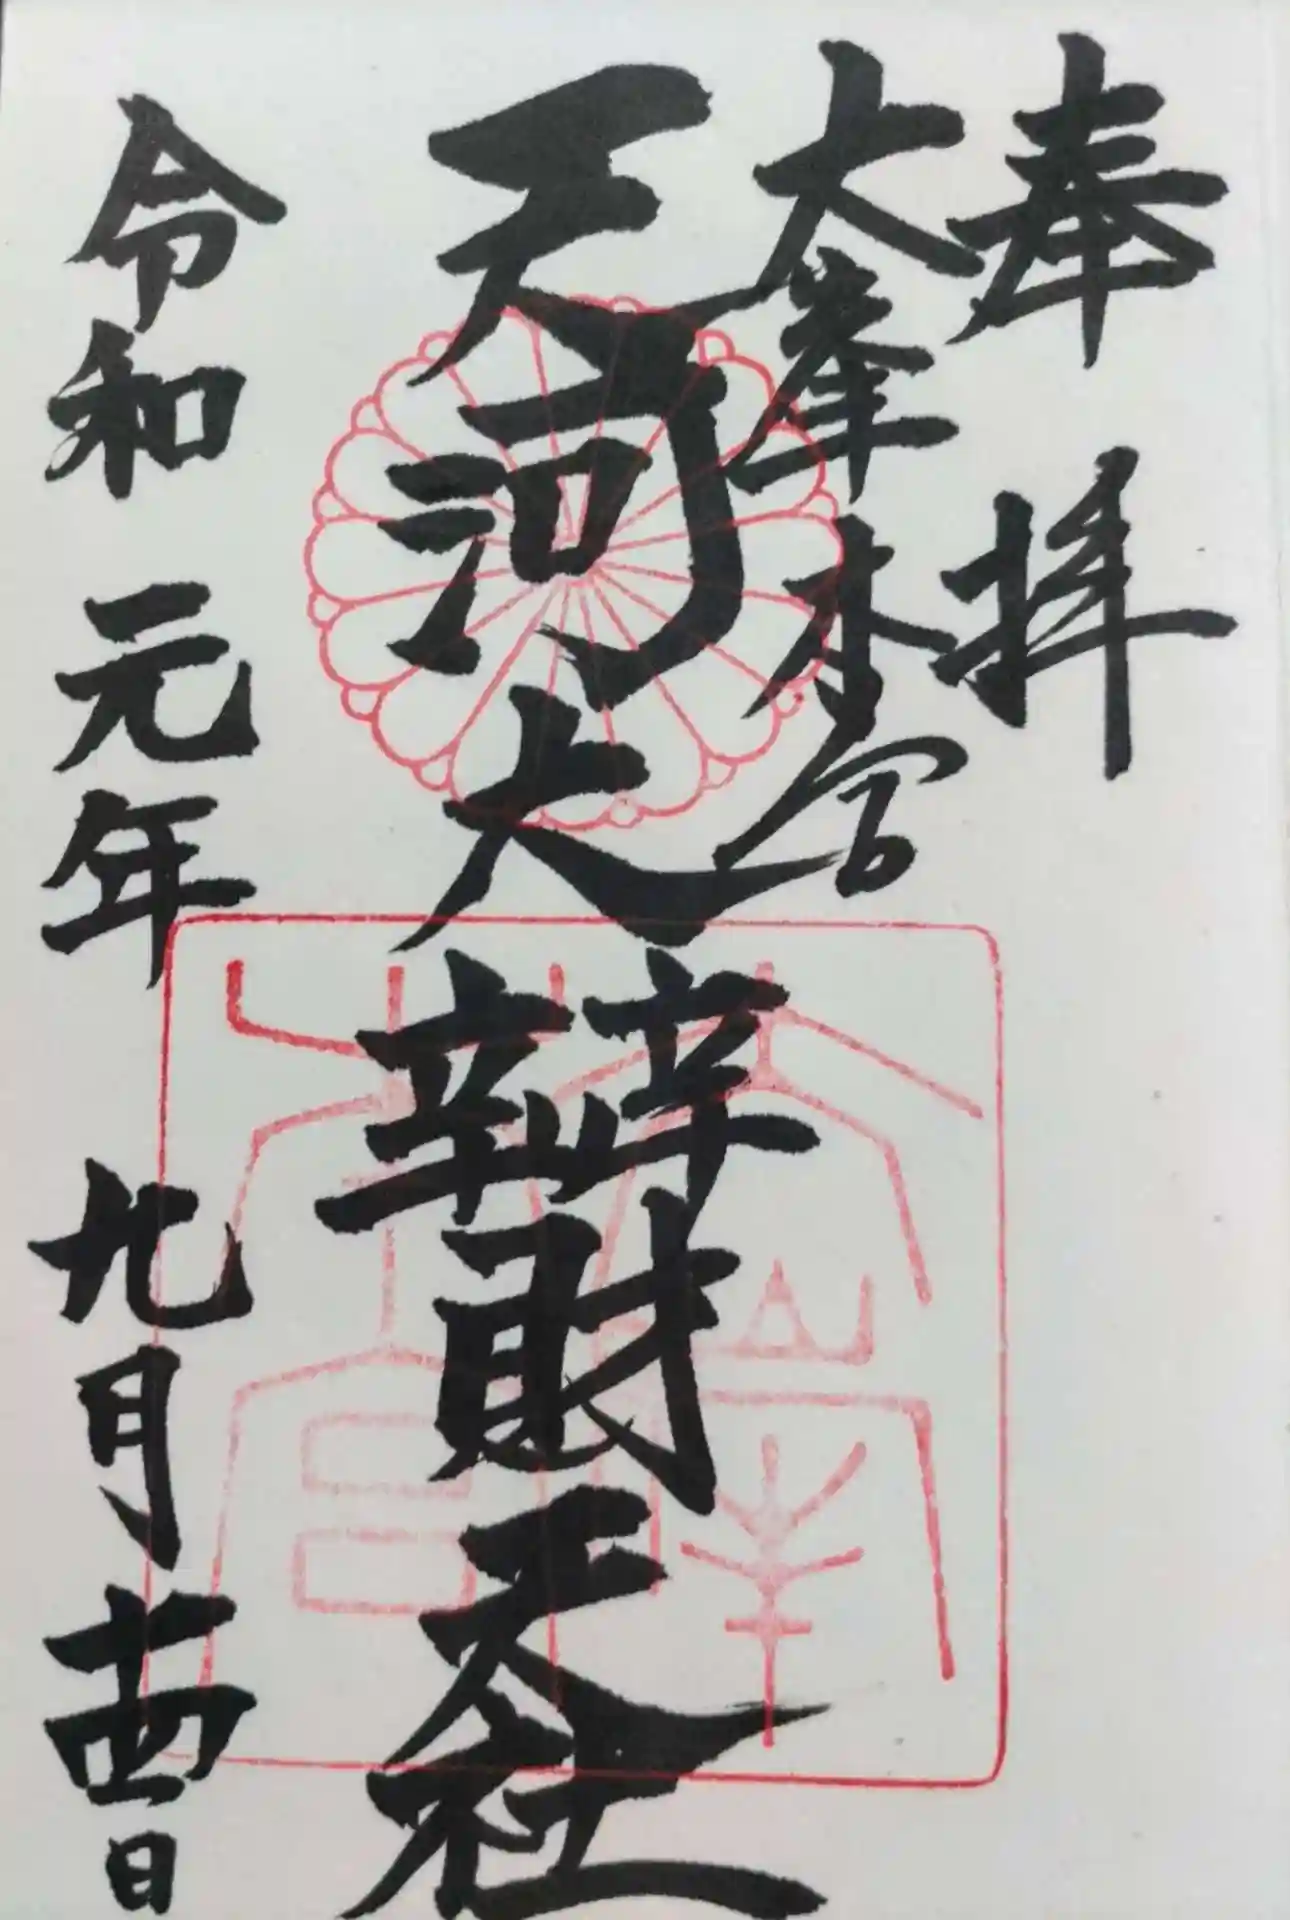 奉拝
大峯本宮
天河大辨財天社
令和元年九月十四日
大峯
本宮